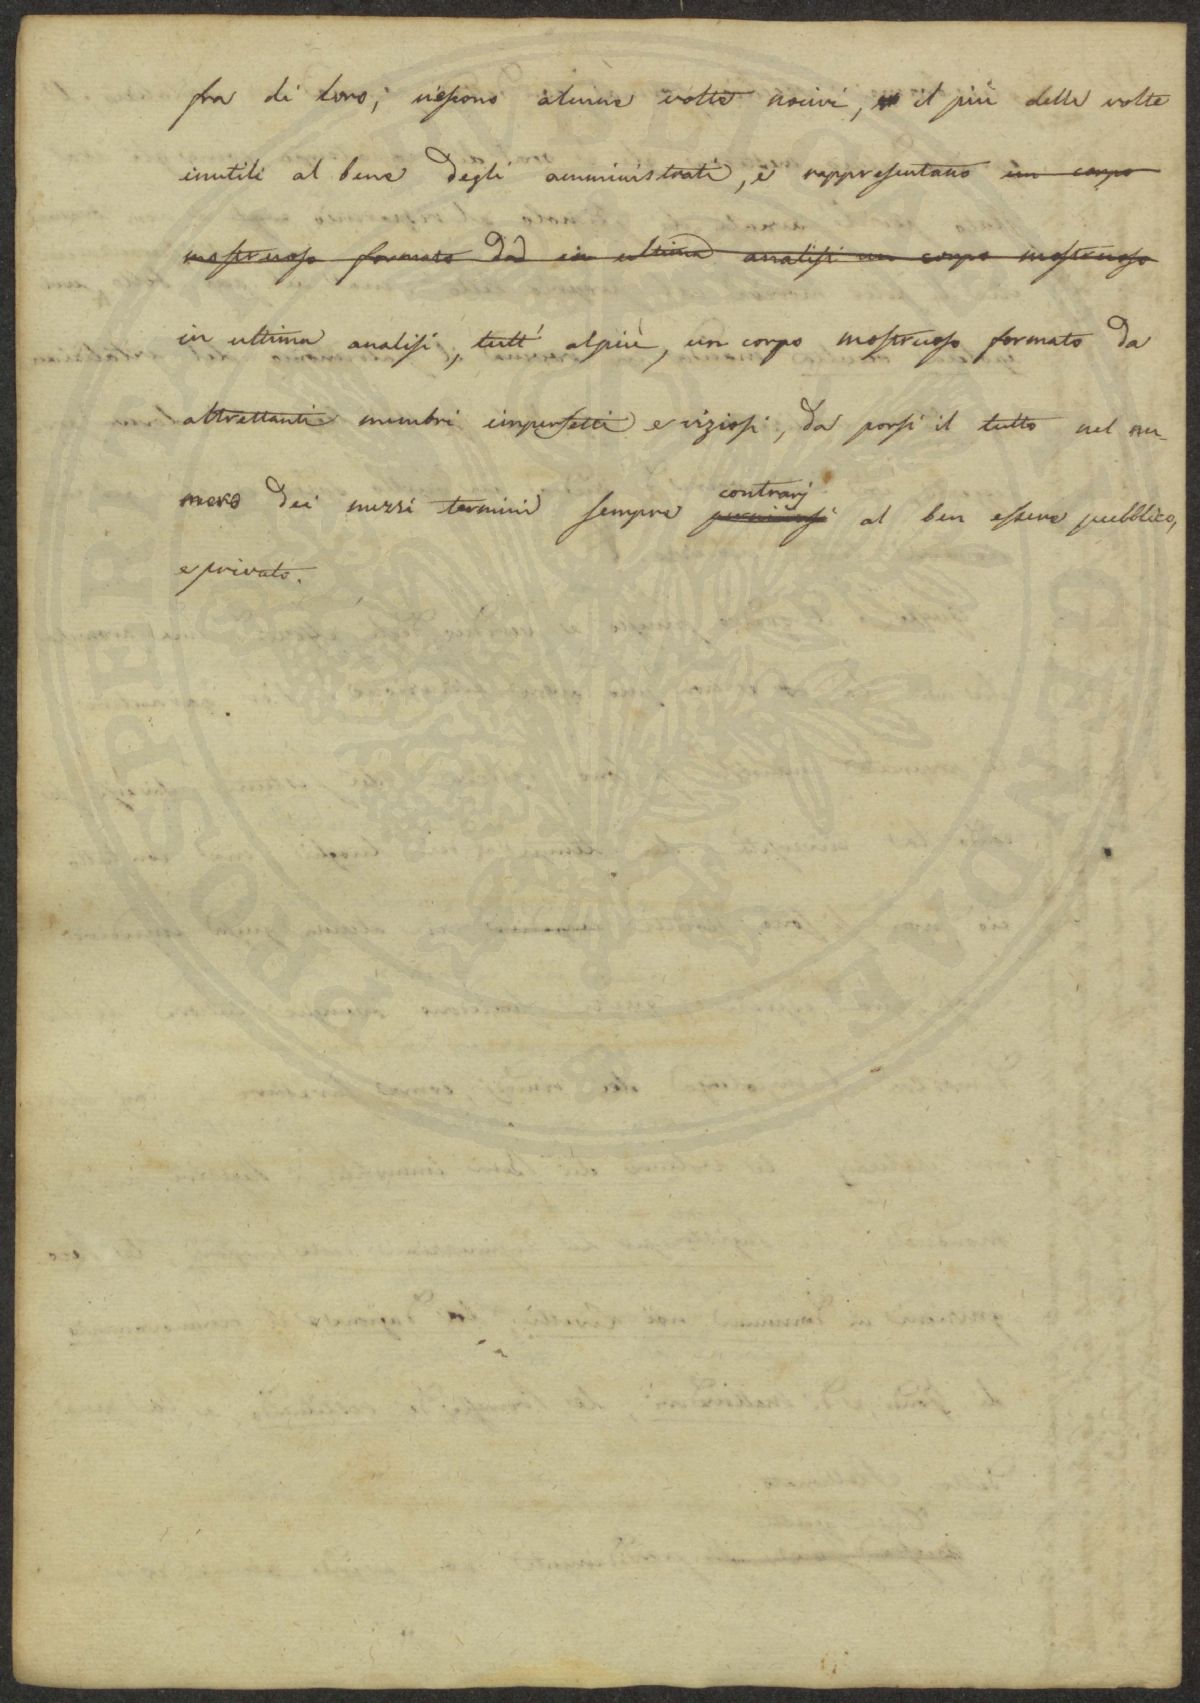 fra di loro; riescono alcune volte nocivi, il più delle volte
inutili al bene degli amministrati, e rappresentano un corpo
mostruoso formato da in ultima analisi un corpo mostruoso
in ultima analisi, tutt' alpiù, un corpo mostruoso formato da
altrettanti membri imperfetti e viziosi, da porsi il tutto nel nu-
mero dei mezzi termini sempre contrarj al ben essere pubblico,
e privato.